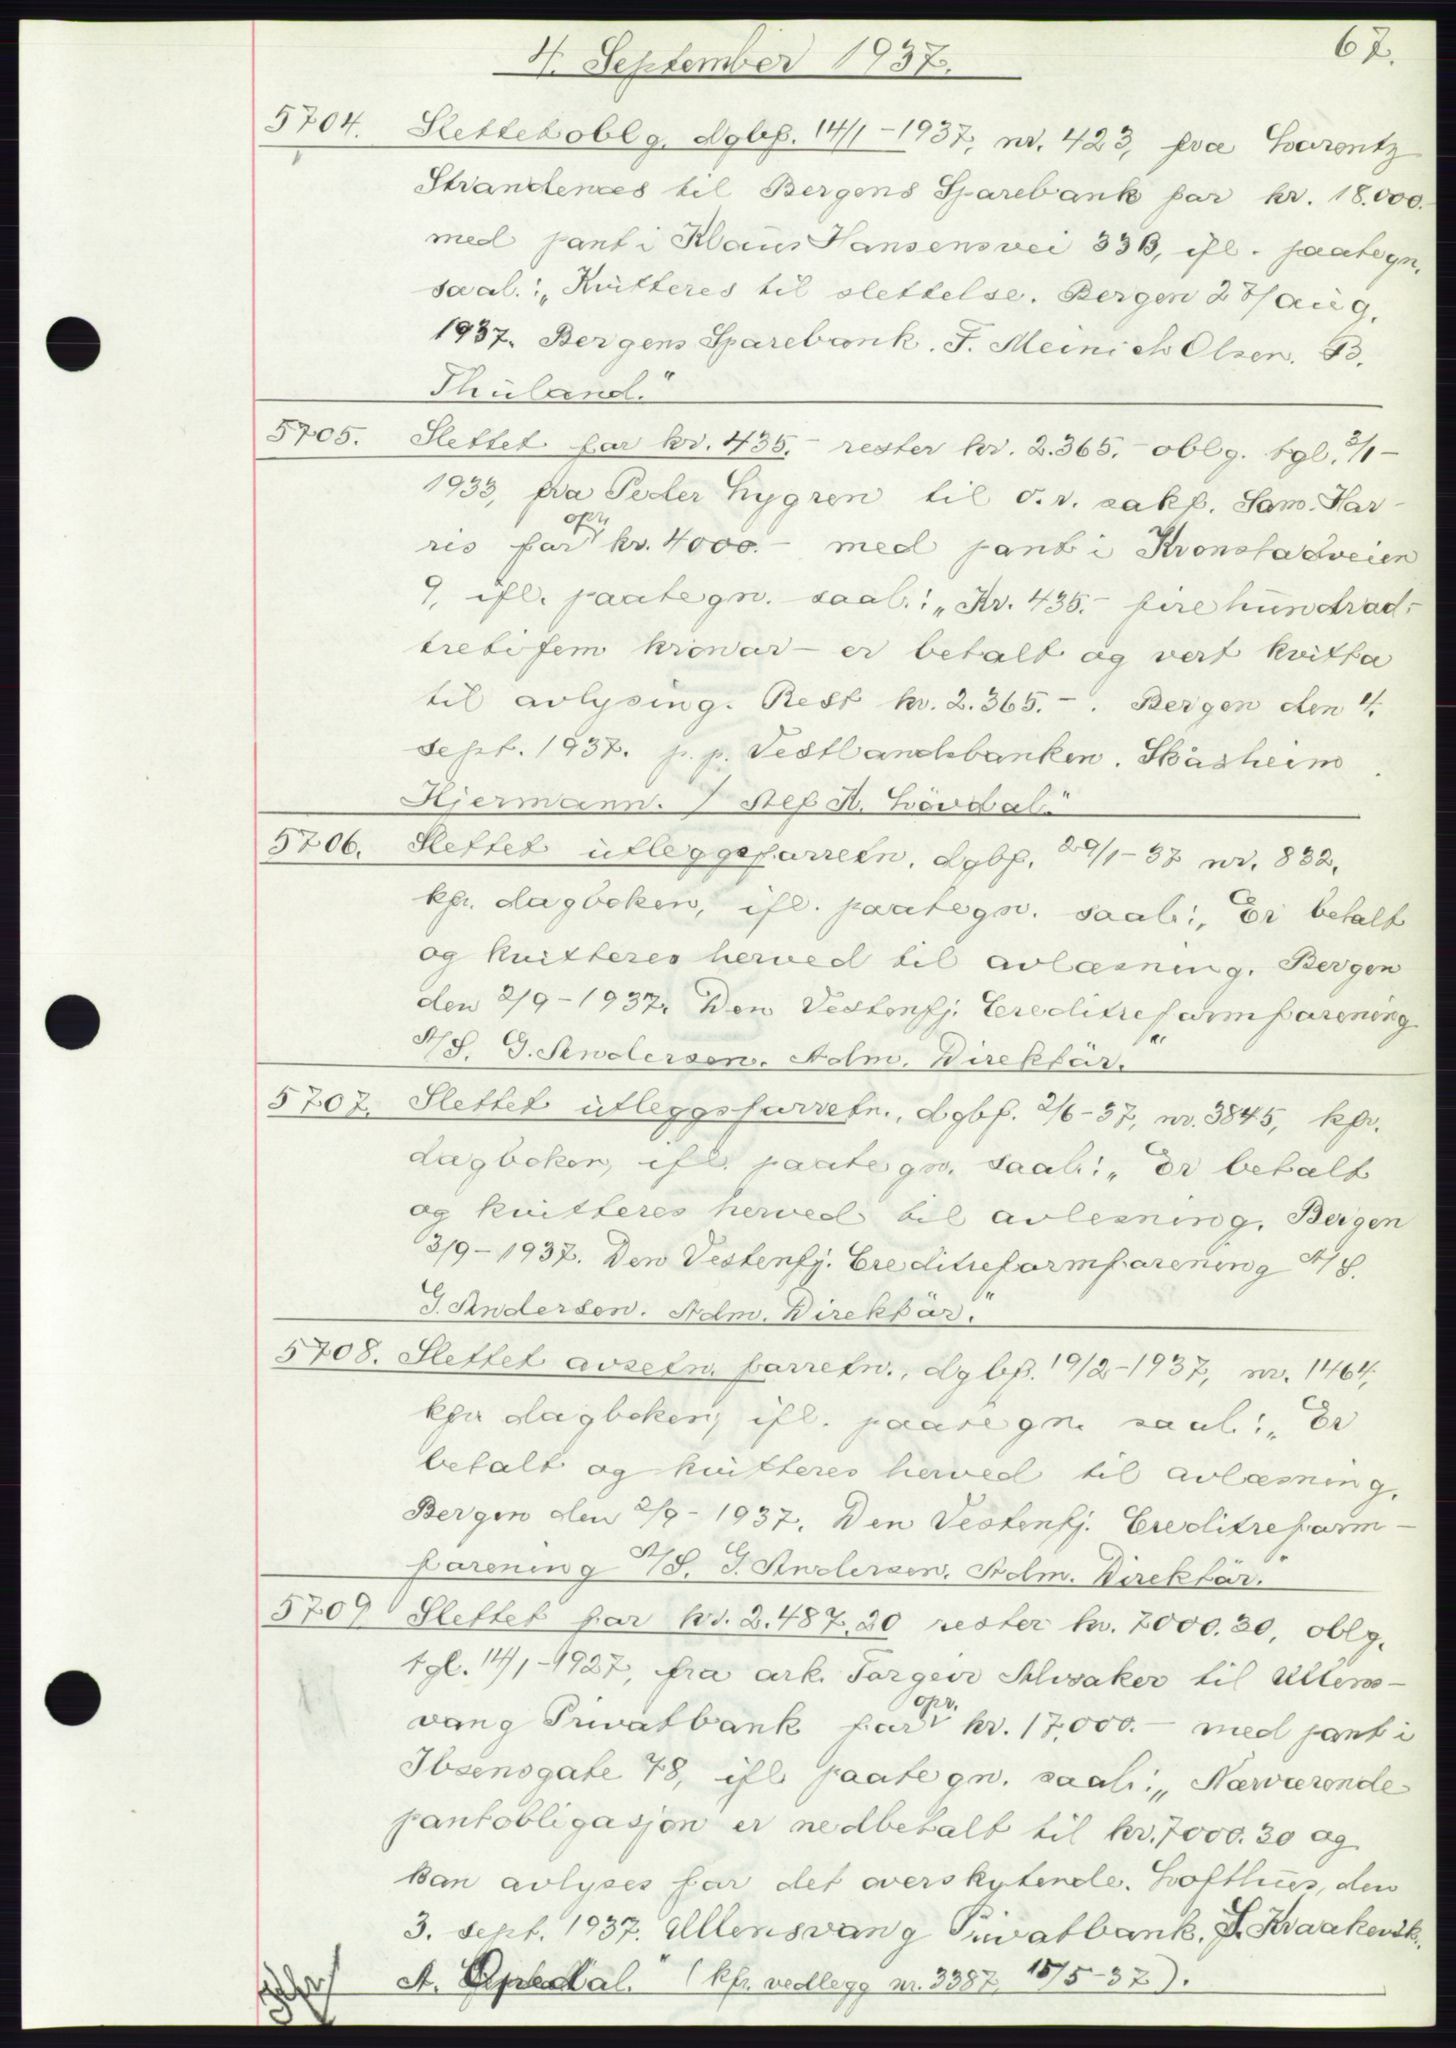 67.
4. September 1937.
5704. Slettet oblg. dgbf. 14/1-1937, nr. 423, fra Larentz
Strandenæs til Bergens Sparebank for kr. 18.000.-
med pant i Klaus Hansensvei 33B, ifl. paategn.
saal.: „Kvitteres til slettelse. Bergen 27/aug.
1937. Bergens Sparebank. F. Meinich Olsen. B.
Thuland."
5705. Slettet for kr. 435.- rester kr. 2.365.- oblg. tgl. 3/1-
1933, fra Peder Lygren til o.r. sakf. Sam. Har-
opr.
ris for kr. 4000.- med pant i Kronstadveien
9, ifl. paategn. saal.: „Kr. 435.- fire hundrad-
tretifem kronar - er betalt og vert kvitta
til avlysing. Rest kr. 2.365.-. Bergen den 4.
sept. 1937. p.p. Vestlandsbanken. Skåsheim.
Hjermann. / Alf A. Lövdal."
5706. Slettet utleggsforretn. dgbf. 29/1-37 nr. 832,
kfr. dagboken, ifl. paategn. saal.: „Er betalt
og kvitteres herved til avlæsning. Bergen
den 2/9-1937. Den Vestenfj. Creditreformforening
A/S. G. Andersen. Adm. Direktör."
5707. Slettet utleggsforretn., dgbf. 2/6-37, nr. 3845, kfr.
dagboken, ifl. paategn. saal.: „Er betalt
og kvitteres herved til avlesning. Bergen
3/9-1937. Den Vestenfj. Creditreformforening A/S.
G. Andersen. Adm. Direktör."
5708. Slettet avsetn. forretn., dgbf. 19/2-1937, nr. 1464,
kfr dagboken, ifl. paategn. saal.: „Er
betalt og kvitteres herved til avlæsning.
Bergen den 2/9-1937. Den Vestenfj. Creditreform-
forening A/S. G. Andersen. Adm. Direktör."
5709 Slettet for kr. 2.487.20 rester kr. 7000.30, oblg.
tgl. 14/1-1927, fra ark. Torgeir Alvsaker til Ullens-
opr.
vang Privatbank for kr. 17.000.- med pant i
Ibsensgate 78, ifl. paategn. saal.: „Nærværende
pantobligasjon er nedbetalt til kr. 7000.30 og
kan avlyses for det overskytende. Lofthus, den
3. sept. 1937. Ullensvang Privatbank. S. Kraakevik.
A. Opedal." (kfr. vedlegg nr. 3387, 15/5-37).